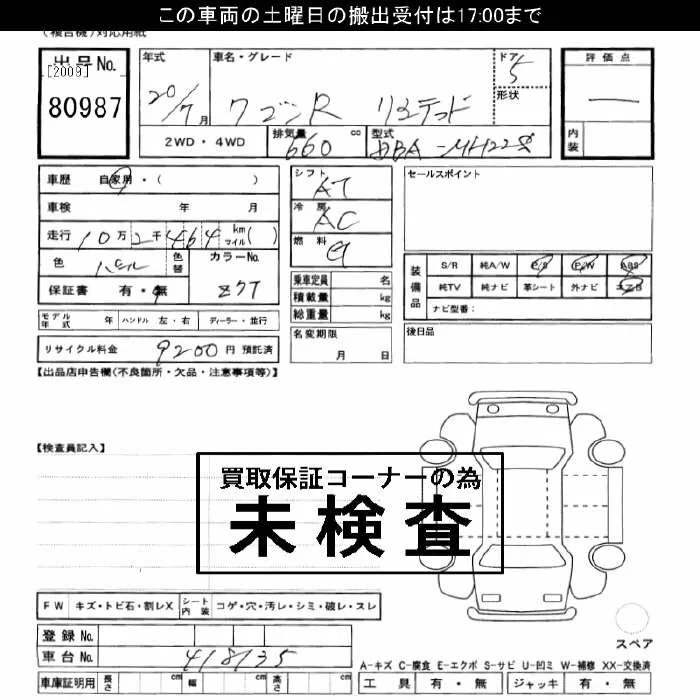 この車両の土曜日の搬出受付は17:00まで
(複合機)対応用紙
出品No.
[2009]
80987
年式
20/7月
車名・グレード
ワゴンR リミテッド
ドア
5
形状
2WD・4WD
排気量
660 cc
型式
DBA-MH22S
評価点
内装
車歴 自家用・( )
車検 年 月
走行 10万2千464 km マイル( )
色
色替
カラーNo.
Z7T
保証書 有・無
モデル年式 年 ハンドル 左・右 ディーラー・並行
リサイクル料金 9200 円 預託済
シフト
AT
冷房
AC
燃料
G
乗車定員 名
積載量 kg
総重量 kg
名変期限
月 日
セールスポイント
装備品
S/R 純A/W P/S P/W ABS
純TV 純ナビ 革シート 外ナビ エアB
ナビ型番:
後日品
【出品店申告欄(不良箇所・欠品・注意事項等)】
【検査員記入】
買取保証コーナーの為
未検査
FW キズ・トビ石・割レX シート内装 コゲ・穴・汚レ・シミ・破レ・スレ
登録No.
車台No. 418135
車庫証明用 長さ cm 幅 cm 高さ cm
スペア
A-キズ C-腐食 E-エクボ S-サビ U-凹ミ W-補修 XX-交換済
工具 有・無 ジャッキ 有・無